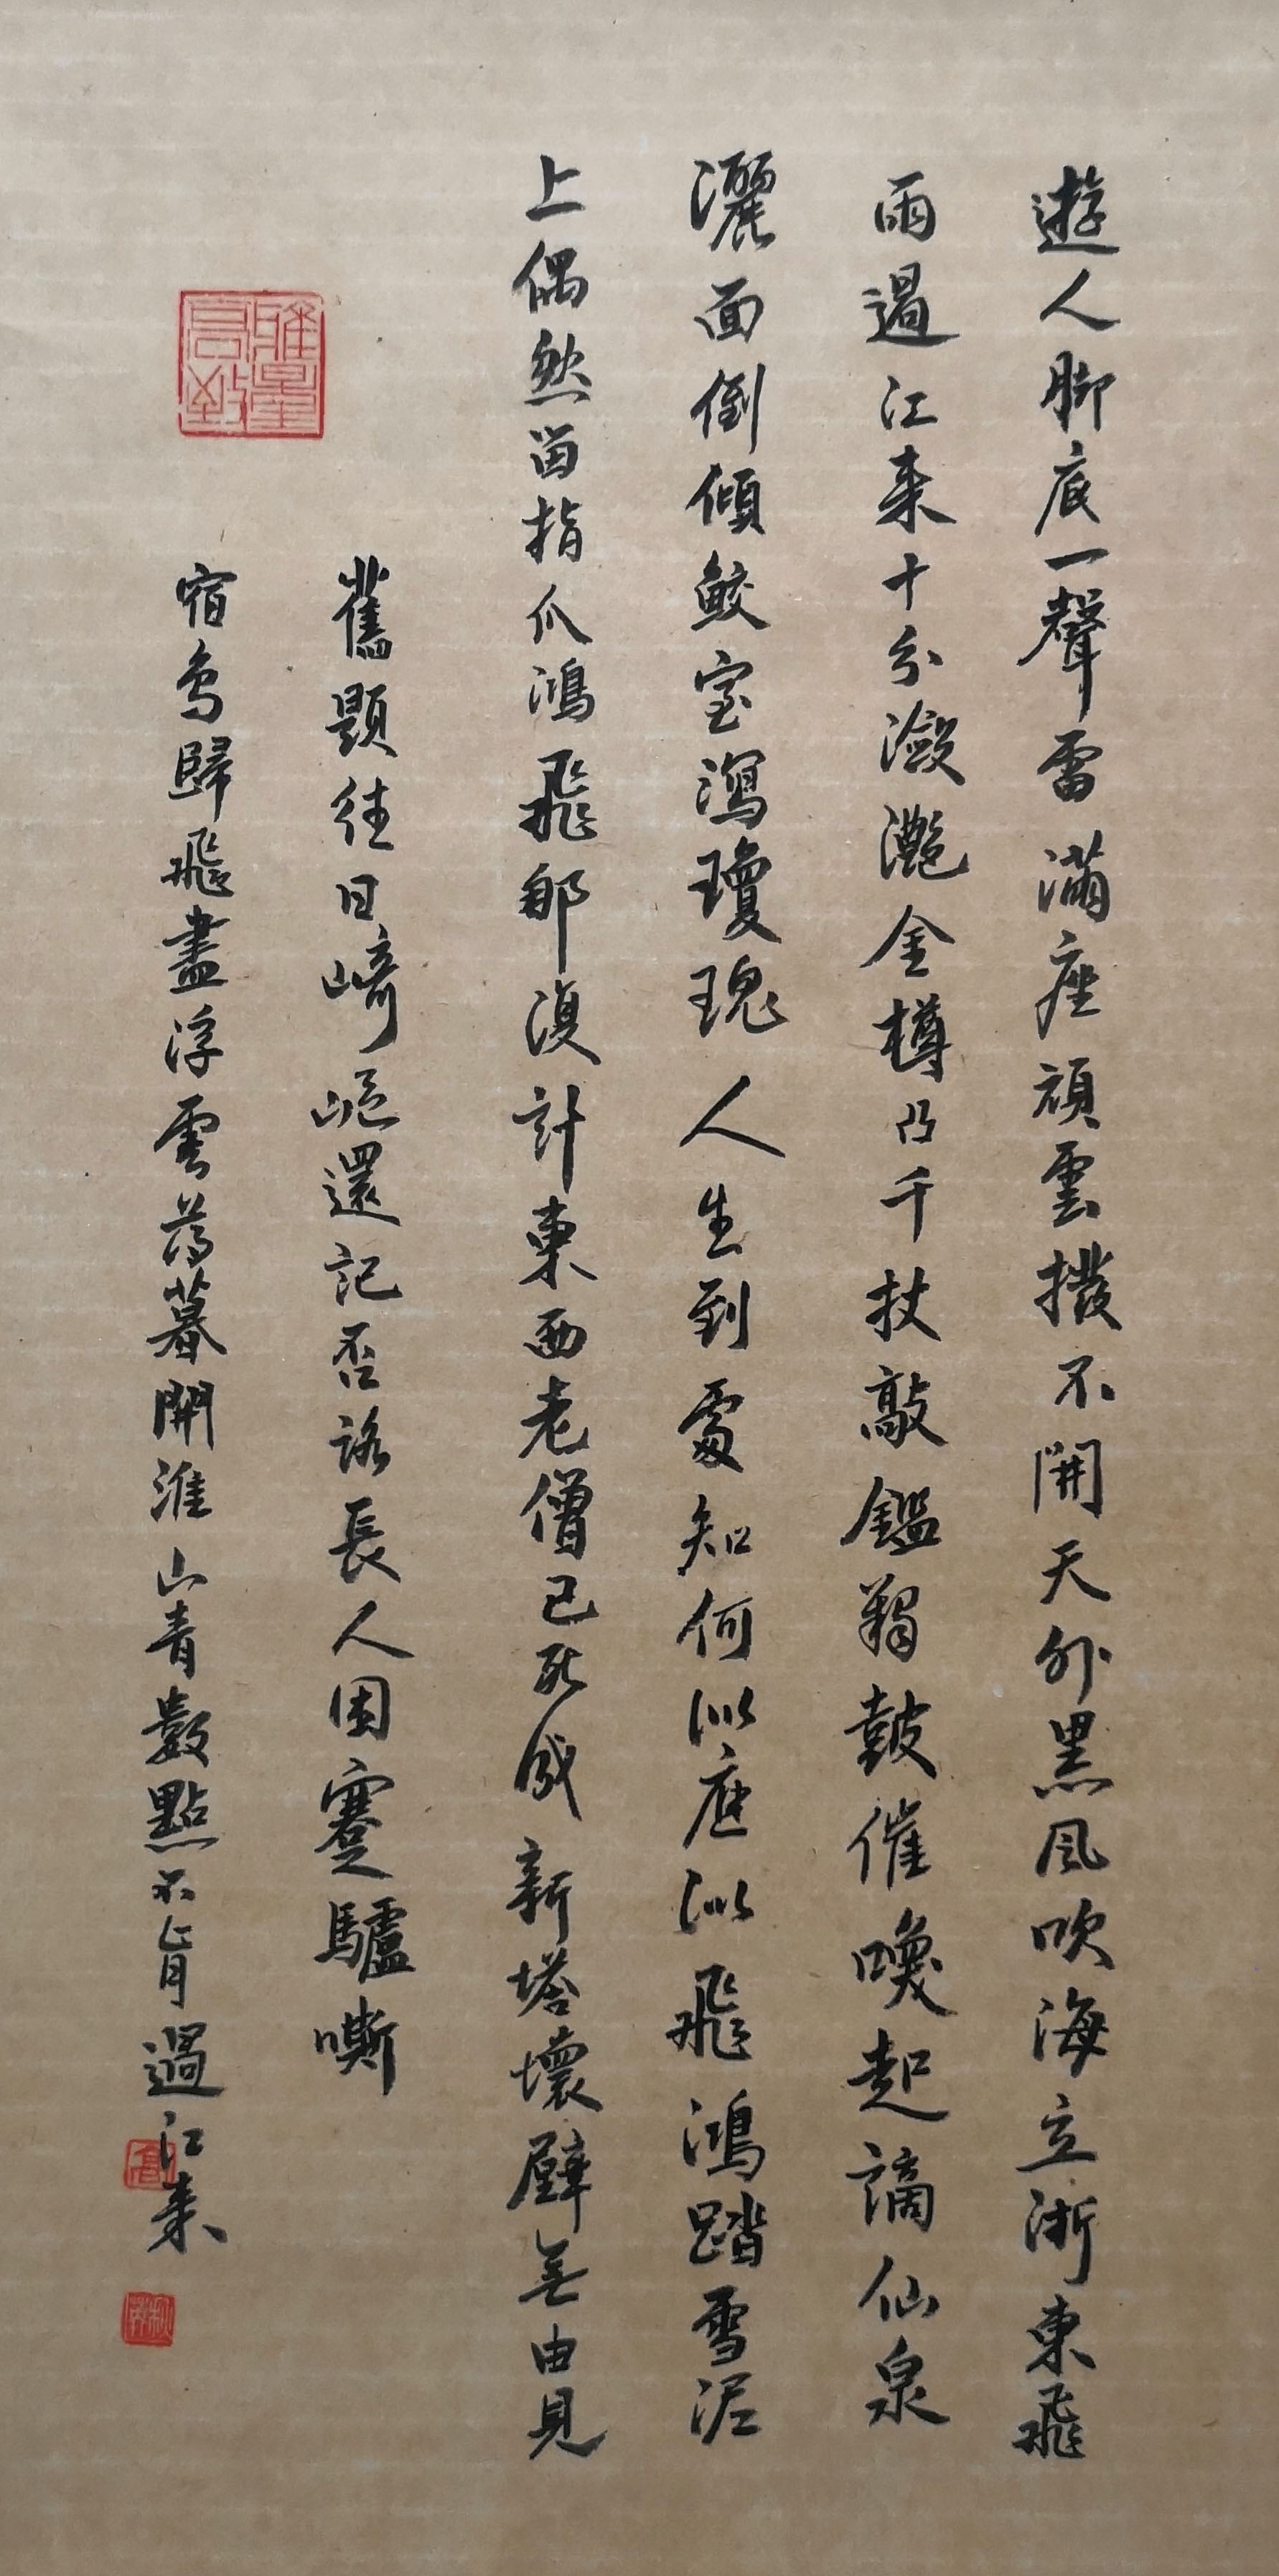 遊人脚底一聲雷滿座頑雲撥不開天外黑風吹海立浙東飛
雨過江来十分瀲灔金樽凸千杖敲鑑羯鼓催喚起謫仙泉
灑面倒傾鮫室瀉瓊瑰人生到處知何似應似飛鴻踏雪泥
上偶然留指爪鴻飛那復計東西老僧已死成新塔壞壁無由見
舊題往日崎嶇還記否路長人困蹇驢嘶
宿鳥歸飛盡浮雲薄暮開淮山青數點不肯過江来